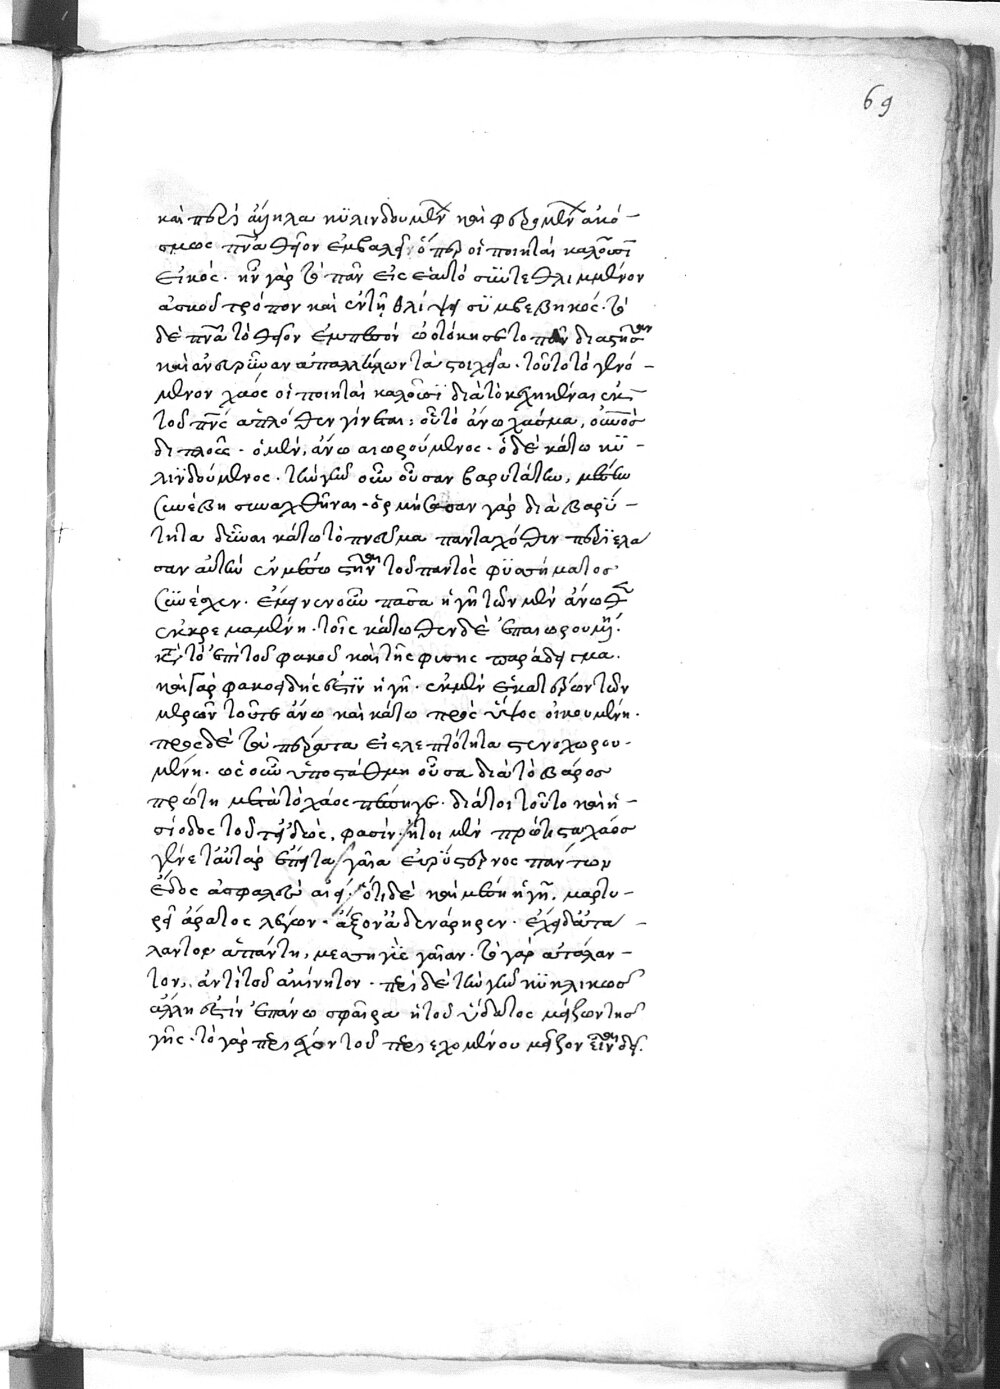 69
καὶ περὶ ἄλληλα κϋλινδουμένων καὶ φερομένων ἀκό-
σμως πνεῦμα θεῖον ἐμβαλεῖν ὅπερ οἱ ποιηταὶ καλοῦσιν
εἰκός. ἦν γὰρ τὸ πᾶν εἰς ἑαυτὸ συντεθλιμμένον
ἀσκοῦ τρόπον καὶ ἐν τῇ θλίψει συμβεβηκός. τὸ
δὲ πνεῦμα τὸ θεῖον ἐμπεσὸν διαστῆναι
καὶ ἀπαλλήλων τὰ στοιχεῖα. τοῦτο τὸ γενό-
μενον χάος οἱ ποιηταὶ καλοῦσϊ διὰ τὸ κεχηνέναι ἐκ
τοῦ πνεύματος ἁπλόθεν γίνεται; οὗτο ἄνω χάσμα, οὐρανὸς
διπλοῦς. ὁ μὲν, ἄνω αἰωρούμενος. ὁ δὲ κάτω κϋ-
λϊνδούμενος. τὴν γῆν οὖν οὖσαν βαρυτάτην, μέσην
συνέβη συναχθῆναι. ὁρμήσασαν γὰρ διὰ βαρϋ-
τητα δεῖναι κάτω τὸ πνεῦμα πανταχόθεν περϊέλα
σαν αὐτὴν ἐν μέσω στῆναι τοῦ παντὸς φϋσήματος
συνέσχεν. ἔμεινεν οὖν πᾶσα ἡ γῆ τῶν μὲν ἄνωθεν
ἐκκρεμαμένη. τοῖς κάτωθεν δὲ ἐπαιωρουμένη.
καὶ τὸ ἐπὶ τοῦ φακοῦ καὶ τῆς φύσης παράδειγμα.
καὶ γὰρ φακοειδής ἐστϊν ἡ γῆ. ἐκ μὲν ἑκατέρων τῶν
μερῶν τοῦτε ἄνω καὶ κάτω πρὸς ὕψος οἰκουμένη.
πρὸς δὲ τὰ πέρατα εἰς λεπτότητα στενοχωρου-
μένη. ὡς οὖν ὑποστάθμη οὖσα διὰ τὸ βάρος
πρώτη μετὰ τὸ χάος πέπηγε. διά τοι τοῦτο καὶ ἡ-
σίοδος τοῦ φασίν. ἤτοι μὲν πρώτιστα χάος
γένετ αὐτὰρ ἔπειτα γαῖα εὐρύστερνος πάντων
ἕδος ἀσφαλὲς αἰεί. ὅτι δὲ καὶ μέση ἡ γῆ. μαρτυ-
ρεῖ ἄρατος λέγων. ἄξονα δ ἐν ἄρηρεν. ἔχει δ ἀτά-
λαντον ἁπάντη, μεσσηγὺς γαῖαν. τὸ γὰρ ἀτάλαν-
τον, ἀντὶ τοῦ ἀκίνητον. περὶ δὲ τὴν γῆν κϋκλικῶς
ἄλλη ἐστϊν ἐπάνω σφαῖρα ἡ τοῦ ὕδατος μείζων τῆς
γῆς. τὸ γὰρ περιέχον τοῦ περιεχομένου μεῖζον εἶναι δεῖ.